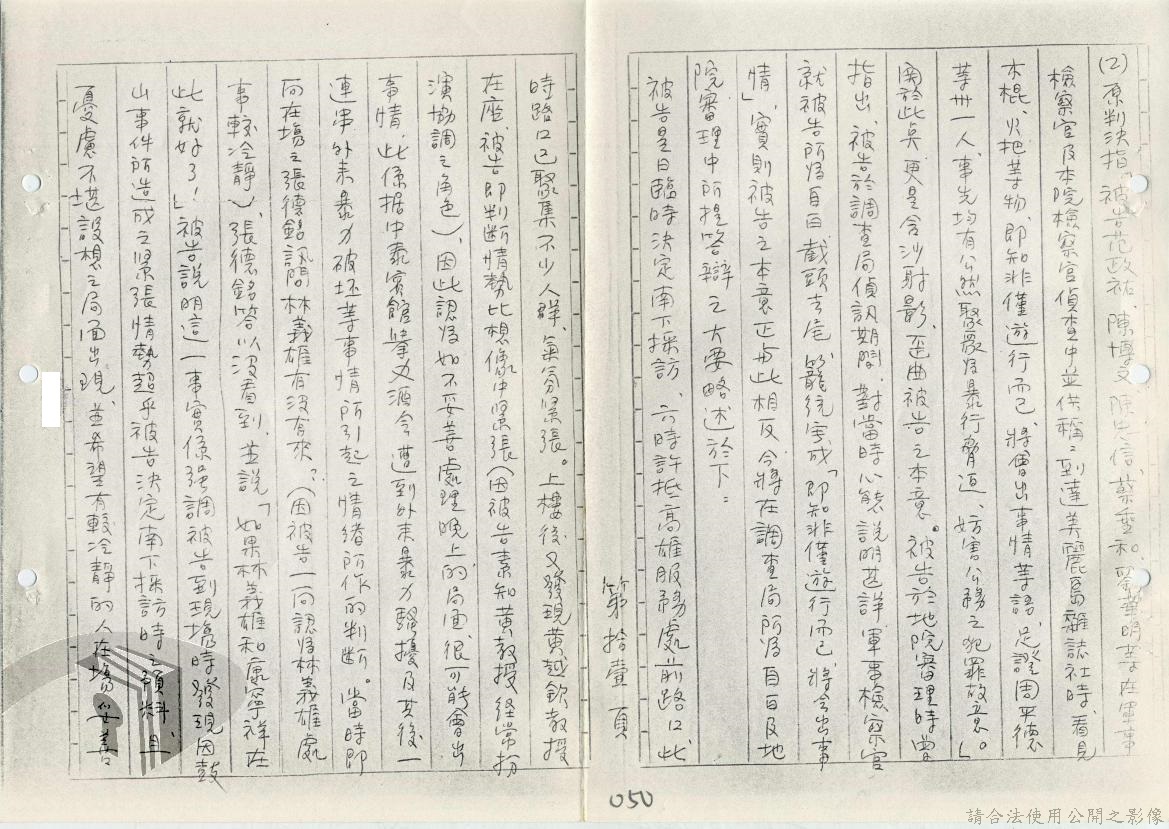 (2)原判決指「被告范政祐、陳博文、陳忠信、蔡垂和、劉華明等在軍事
檢察官及本院檢察官偵查中並供稱:到達美麗島雜誌社時,看見
木棍、火把等物,即知非僅遊行而已,將會出事情等語,足證周平德
等卅一人,事先均有公然聚眾為暴行脅迫、妨害公務之犯罪故意。」
關於此點,更是含沙射影、歪曲被告之本意。被告於地院審理時曾
指出,被告於調查局偵訊期間,對當時心態說明甚詳,軍事檢察官
就被告所為自白截頭去尾,籠統寫成「即知非僅遊行而已,將會出事
情」,實則被告之本意正與此相反,今將在調查局所為自白及地
院審理中所提答辯之大要略述於下:
被告是日臨時決定南下採訪,六時許抵高雄服務處前路口,此
第拾壹頁
時路口已聚集不少人群,氣氛緊張。上樓後又發現黃越欽教授
在座,被告即判斷情勢比想像中緊張(因被告素知黃教授經常扮
演協調之角色),因此認為如不妥善處理,晚上的局面很可能會出
事情,此係據中泰賓館、肇及酒會遭到外來暴力騷擾及其後一
連串外來暴力破坏等事情所引起之情緒所作的判斷。當時即
向在場之張德銘訊問林義雄有沒有來?(因被告一向認為林義雄處
事較冷靜),張德銘答以沒看到,並說「如果林義雄和康寧祥在
此就好了!」被告說明這一事實係強調被告到現場時發現因鼓
山事件所造成之緊張情勢超乎被告決定南下採訪時之預料,且
憂慮不堪設想之局面出現,並希望有較冷靜的人在場妥善
050
請合法使用公開之影像